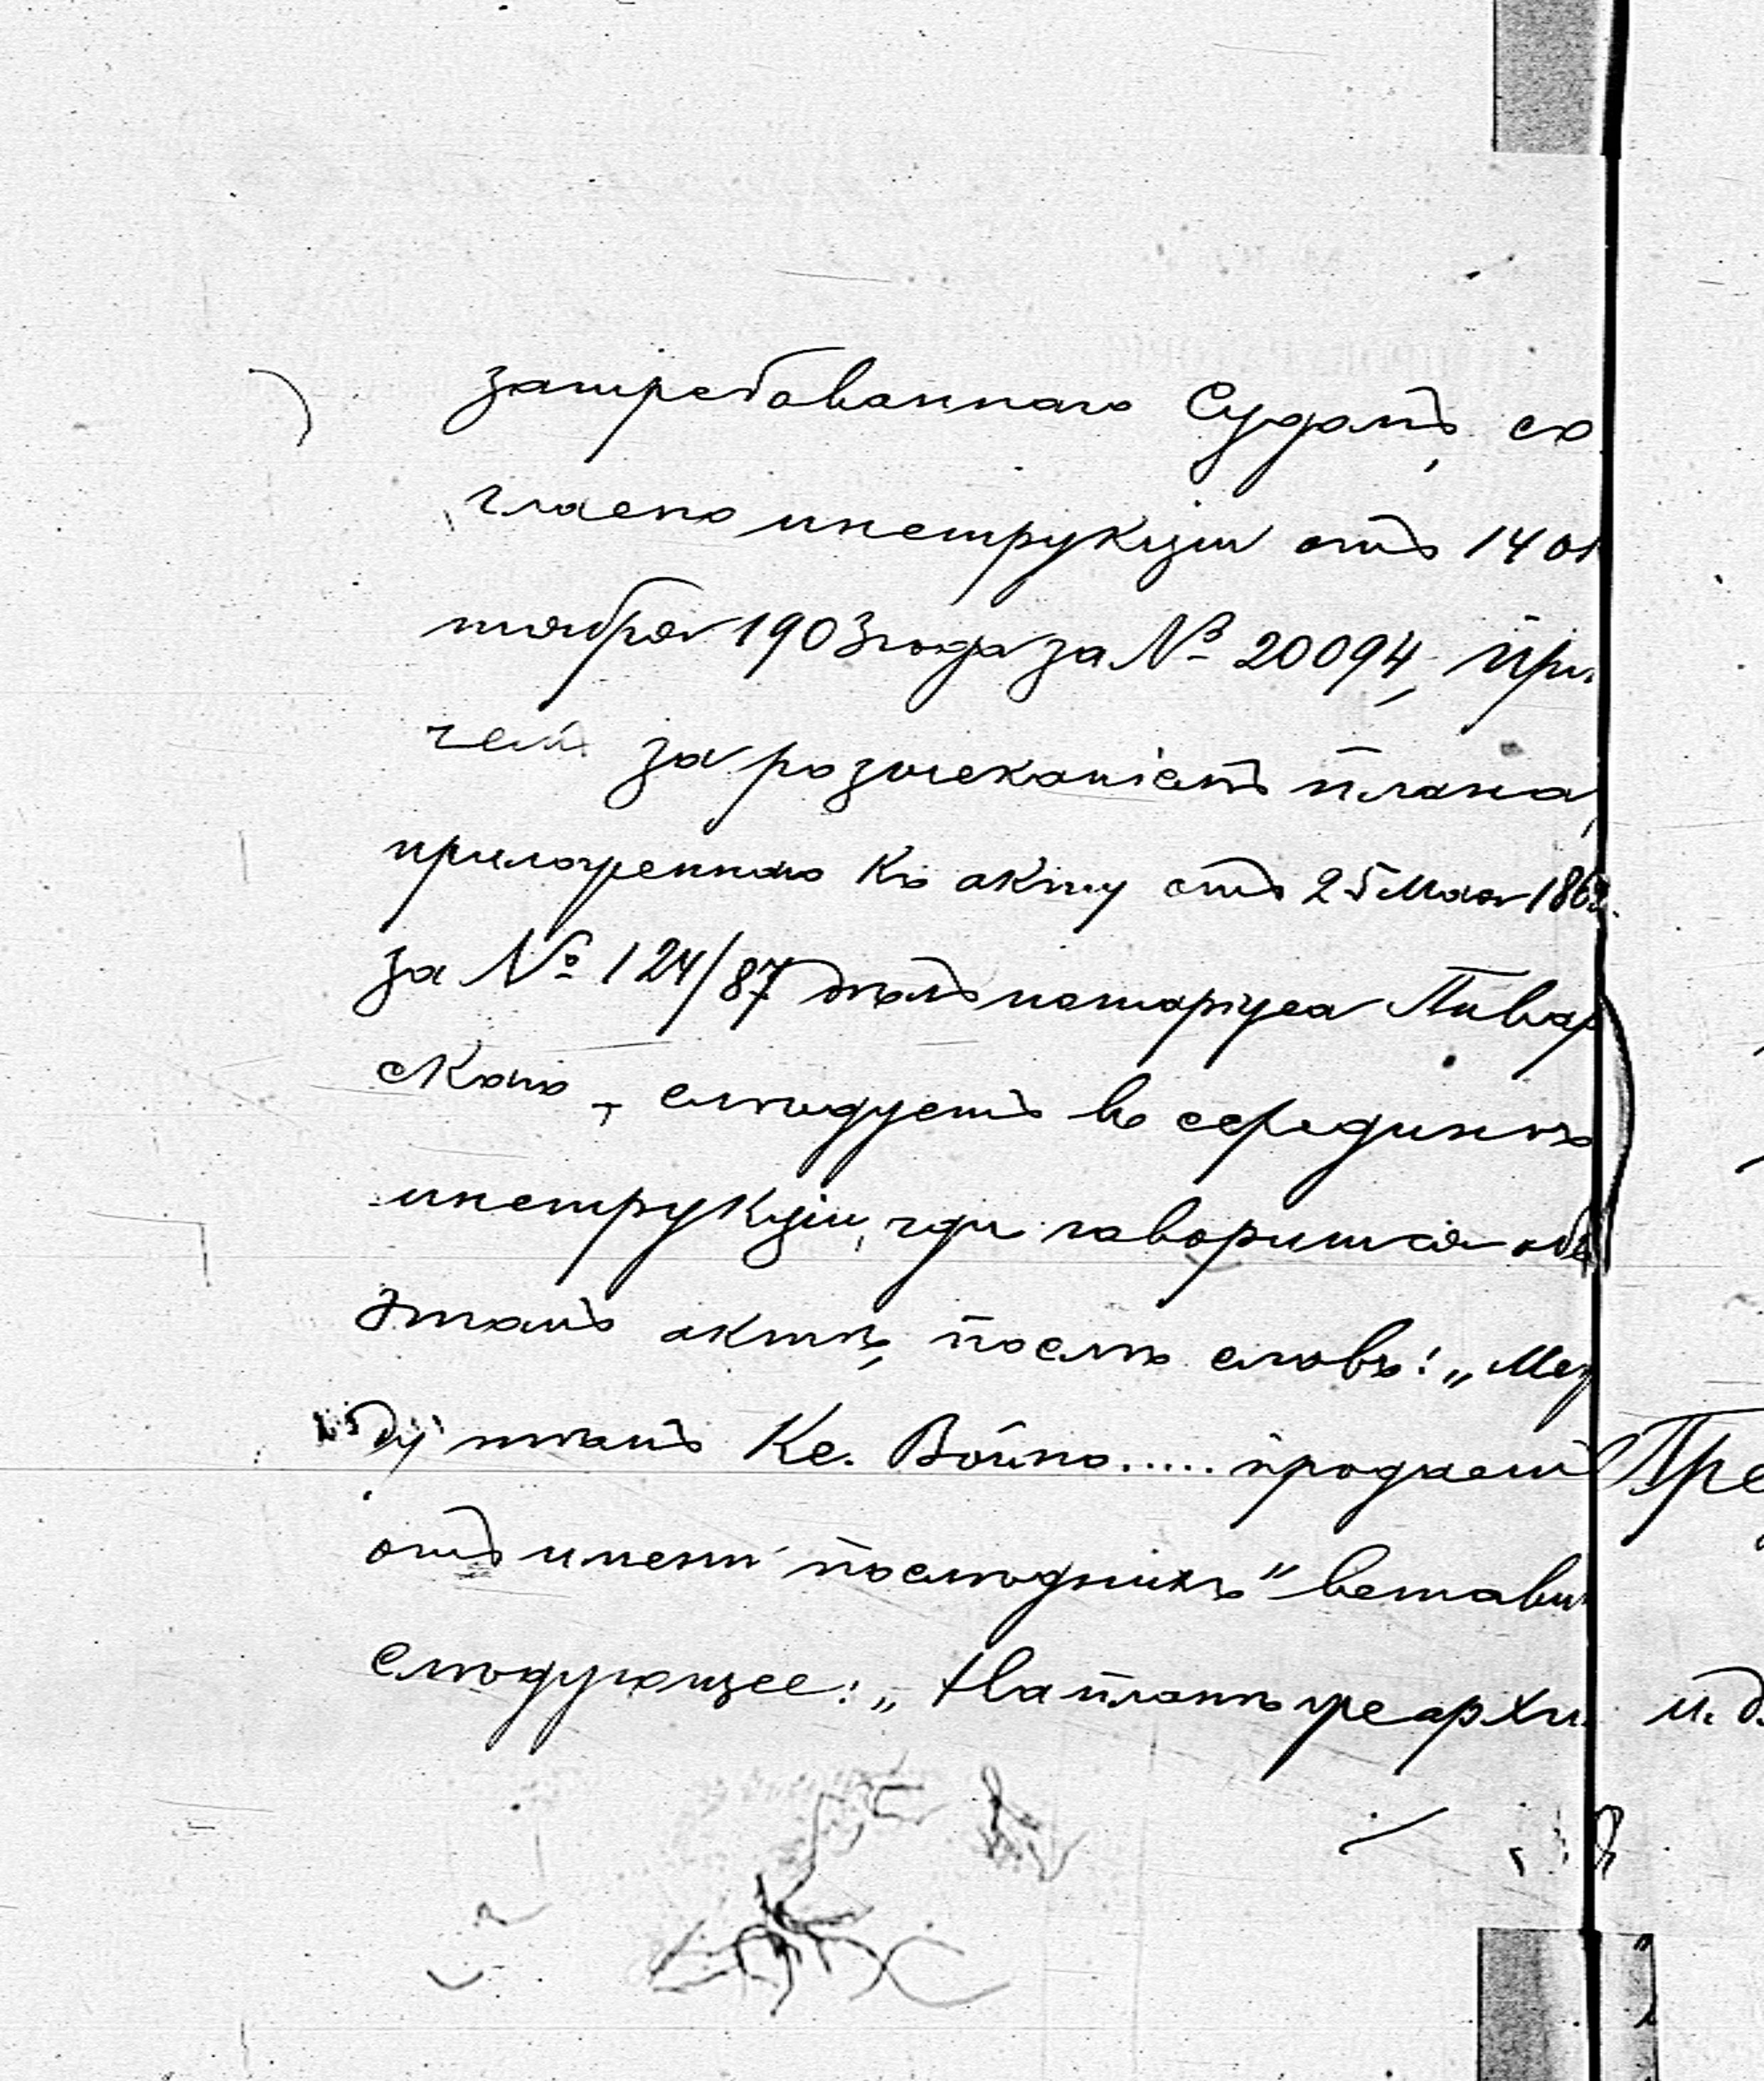 затребованнаго Судомъ, со
гласно инструкціи отъ 14 ок
тября 1903 года за № 20094, при
чемъ за розысканіемъ плана,
приложеннаго къ акту отъ 25 Мая 186
за № 124/87 дѣлъ нотаріуса Пивар
скаго, слѣдуетъ въ серединѣ
инструкціи, гдѣ говорится объ
этомъ актѣ, послѣ словъ: „Меж
ду тѣмъ Кс. Война..... продаетъ
отъ имени послѣднихъ" встави
слѣдующее: „На планѣ же архи
Пре
и. д.